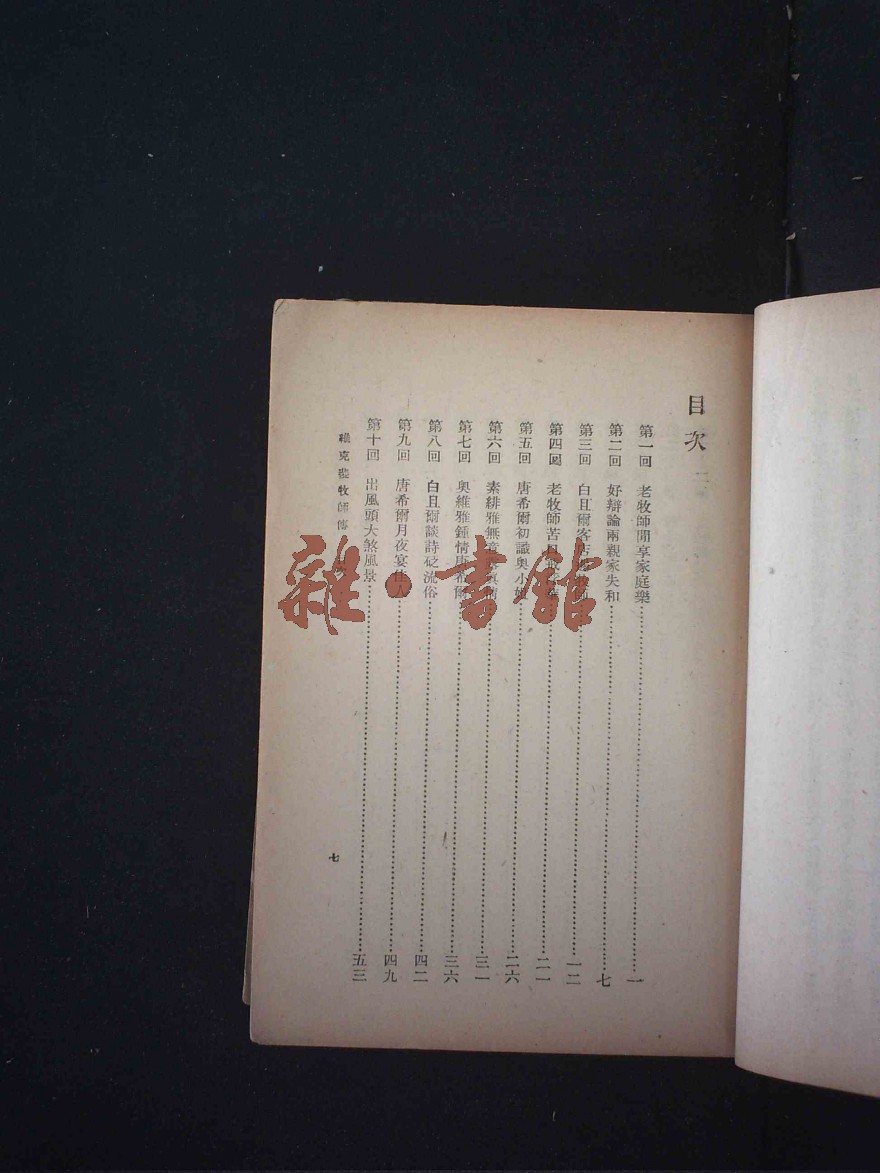 目次 二
第一回 老牧師閒享家庭樂 一
第二回 好辯論兩親家失和 七
第三回 白且爾客店 一二
第四回 老牧師苦口 二一
第五回 唐希爾初識奧小姐 二六
第六回 素緋雅無意 三一
第七回 奧維雅鍾情唐希爾 三六
第八回 白且爾談詩砭流俗 四二
第九回 唐希爾月夜宴佳人 四九
第十回 出風頭大煞風景 五三
克斐牧師傳
七
雜·書館